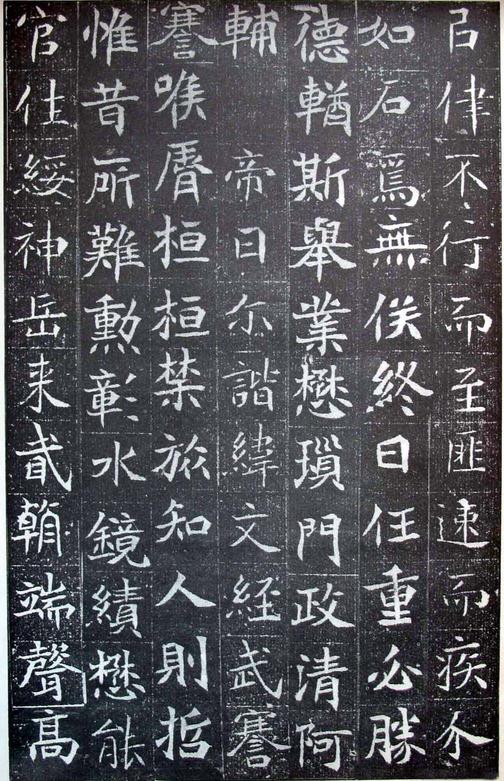 㠯律不行而至匪速而疾介
如石焉無俟終日任重必勝
德輶斯舉業懋瑣門政清阿
輔　帝曰尒諧緯文経武謇
謇喉脣桓桓禁旅知人則哲
惟昔所難勳彰水鏡績懋能
官往綏神岳来貳朝端聲高